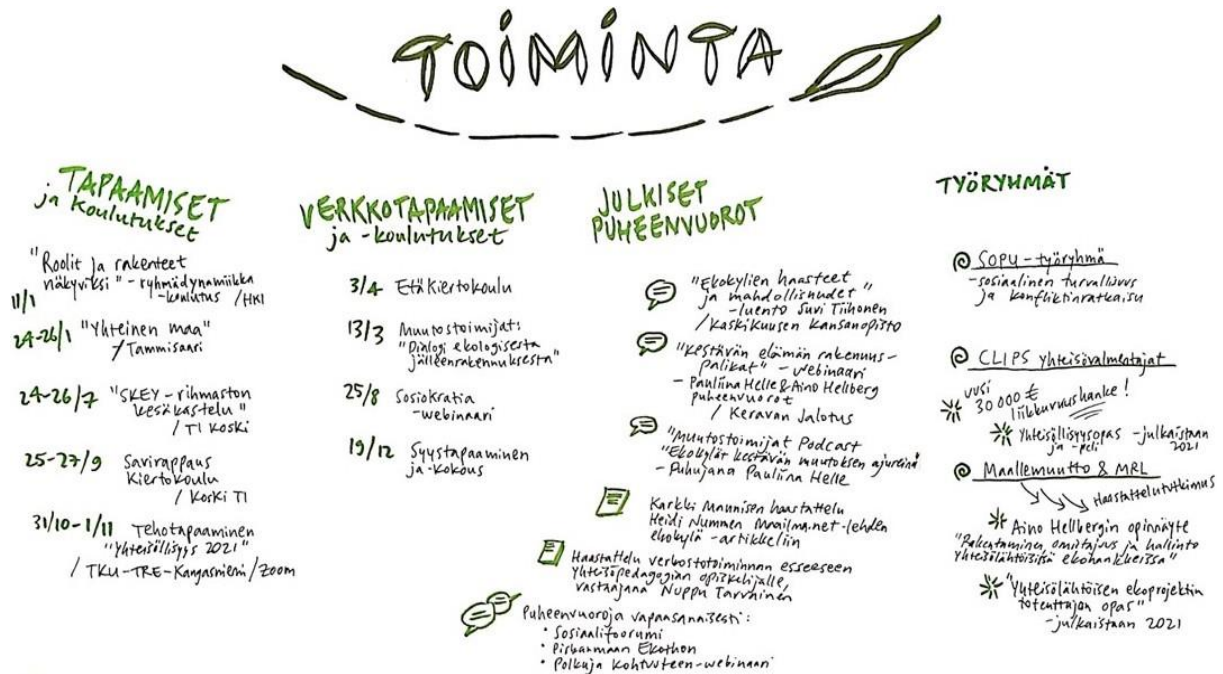 TOIMINTA
TAPAAMISET
ja koulutukset
"Roolit ja rakenteet
näkyviksi" - ryhmädynamiikka
11/1 -koulutus /HKI
24-26/1 "Yhteinen maa"
/Tammisaari
24-26/7 "SKEY-rihmaston
kesäkastelu"
/ Tl Koski
25-27/9 Savirappaus
Kiertokoulu
/ Koski Tl
31/10-1/11 Tehotapaaminen
"Yhteisöllisyys 2021"
/ TKU-TRE-Kangasniemi/Zoom
VERKKOTAPAAMISET
ja -koulutukset
3/4 EtäKiertokoulu
13/3 Muutostoimijat:
"Dialogi ekologisesta
jälleenrakennuksesta"
25/8 Sosiokratia
-webinaari
19/12 Syystapaaminen
ja -kokous
JULKISET
PUHEENVUOROT
"Ekokylien haasteet
ja mahdollisuudet"
-luento Suvi Tiihonen
/Kaskikuusen Kansanopisto
"Kestävän elämän rakennus-
palikat" - webinaari
- Pauliina Helle & Aino Hellberg
puheenvuorot
/ Keravan Jalotus
"Muutostoimijat Podcast
"Ekokylät kestävän muutoksen ajureina"
- Puhujana Pauliina Helle
Karkki Mannisen haastattelu
Heidi Nummen Maailma.net-lehden
ekokylä -artikkeliin
Haastattelu verkostotoiminnan esseeseen
yhteisöpedagogian opiskelijalle,
vastaajana Nuppu Tarvainen
Puheenvuoroja vapaasanaisesti:
• Sosiaalifoorumi
• Pirkanmaan Ekothon
• Polkuja Kohtuuteen-webinaari
TYÖRYHMÄT
SOPU - työryhmä
-sosiaalinen turvallisuus
ja konfliktinratkaisu
CLIPS yhteisövalmentajat
uusi
30 000 €
liikkuvuushanke!
Yhteisöllisyysopas -julkaistaan
ja -peli 2021
Maallemuutto & MRL
Haastattelututkimus
Aino Hellbergin opinnäyte
"Rakentaminen, omistajuus ja hallinto
yhteisölähtöisissä ekohankkeissa"
"Yhteisölähtöisen ekoprojektin
toteuttajan opas"
-julkaistaan 2021